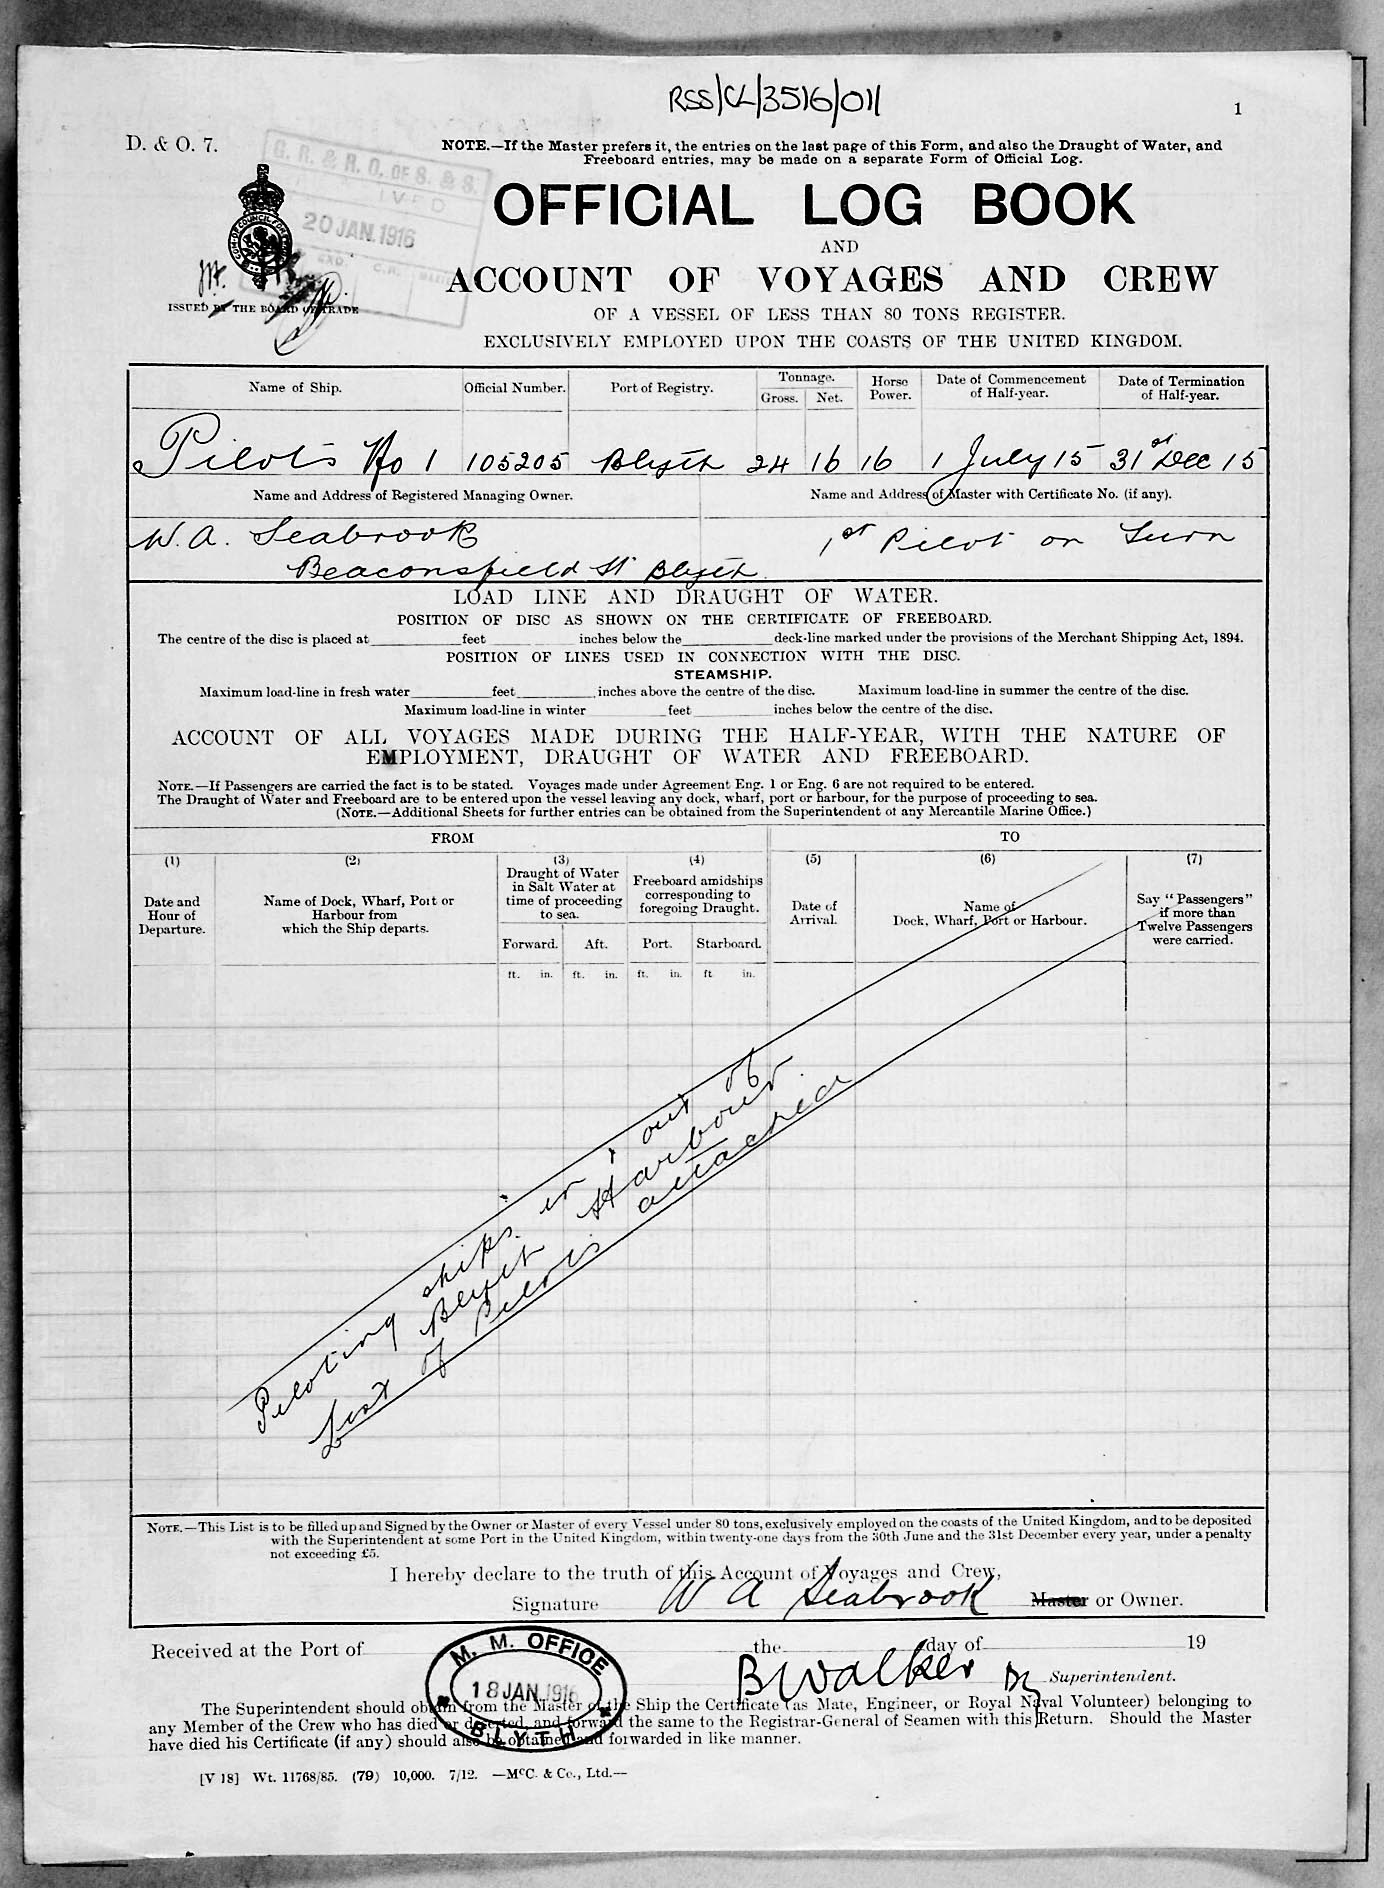 RSS/CL/3516/011
1
D. & O. 7.
NOTE.—If the Master prefers it, the entries on the last page of this Form, and also the Draught of Water, and
Freeboard entries, may be made on a separate Form of Official Log.
G. R. & R. O. OF S. & S.
20 JAN. 1916
OFFICIAL LOG BOOK
AND
ACCOUNT OF VOYAGES AND CREW
ISSUED BY THE BOARD OF TRADE
OF A VESSEL OF LESS THAN 80 TONS REGISTER.
EXCLUSIVELY EMPLOYED UPON THE COASTS OF THE UNITED KINGDOM.
Name of Ship. Official Number. Port of Registry. Tonnage. Gross. Net. Horse Power. Date of Commencement of Half-year. Date of Termination of Half-year.
Pilots No 1 105205 Blyth 24 16 16 1 July 15 31st Dec 15
Name and Address of Registered Managing Owner. Name and Address of Master with Certificate No. (if any).
W. A. Seabrook 1st Pilot on Turn
Beaconsfield St Blyth
LOAD LINE AND DRAUGHT OF WATER.
POSITION OF DISC AS SHOWN ON THE CERTIFICATE OF FREEBOARD.
The centre of the disc is placed at feet inches below the deck-line marked under the provisions of the Merchant Shipping Act, 1894.
POSITION OF LINES USED IN CONNECTION WITH THE DISC.
STEAMSHIP.
Maximum load-line in fresh water feet inches above the centre of the disc. Maximum load-line in summer the centre of the disc.
Maximum load-line in winter feet inches below the centre of the disc.
ACCOUNT OF ALL VOYAGES MADE DURING THE HALF-YEAR, WITH THE NATURE OF
EMPLOYMENT, DRAUGHT OF WATER AND FREEBOARD.
NOTE.—If Passengers are carried the fact is to be stated. Voyages made under Agreement Eng. 1 or Eng. 6 are not required to be entered.
The Draught of Water and Freeboard are to be entered upon the vessel leaving any dock, wharf, port or harbour, for the purpose of proceeding to sea.
(NOTE.—Additional Sheets for further entries can be obtained from the Superintendent of any Mercantile Marine Office.)
FROM TO
(1) (2) (3) (4) (5) (6) (7)
Date and Hour of Departure. Name of Dock, Wharf, Port or Harbour from which the Ship departs. Draught of Water in Salt Water at time of proceeding to sea. Freeboard amidships corresponding to foregoing Draught. Date of Arrival. Name of Dock, Wharf, Port or Harbour. Say "Passengers" if more than Twelve Passengers were carried.
Forward. Aft. Port. Starboard.
ft. in. ft. in. ft. in. ft in.
Piloting ships in & out of
Blyth Harbour.
List of Pilots attached
NOTE.—This List is to be filled up and Signed by the Owner or Master of every Vessel under 80 tons, exclusively employed on the coasts of the United Kingdom, and to be deposited
with the Superintendent at some Port in the United Kingdom, within twenty-one days from the 30th June and the 31st December every year, under a penalty
not exceeding £5.
I hereby declare to the truth of this Account of Voyages and Crew,
Signature W A Seabrook Master or Owner.
Received at the Port of the day of 19
M. M. OFFICE
18 JAN 1916
BLYTH
B Walker Dy Superintendent.
The Superintendent should obtain from the Master of the Ship the Certificate (as Mate, Engineer, or Royal Naval Volunteer) belonging to
any Member of the Crew who has died or deserted, and forward the same to the Registrar-General of Seamen with this Return. Should the Master
have died his Certificate (if any) should also be obtained and forwarded in like manner.
[V 18] Wt. 11768/85. (79) 10,000. 7/12. —McC. & Co., Ltd.—